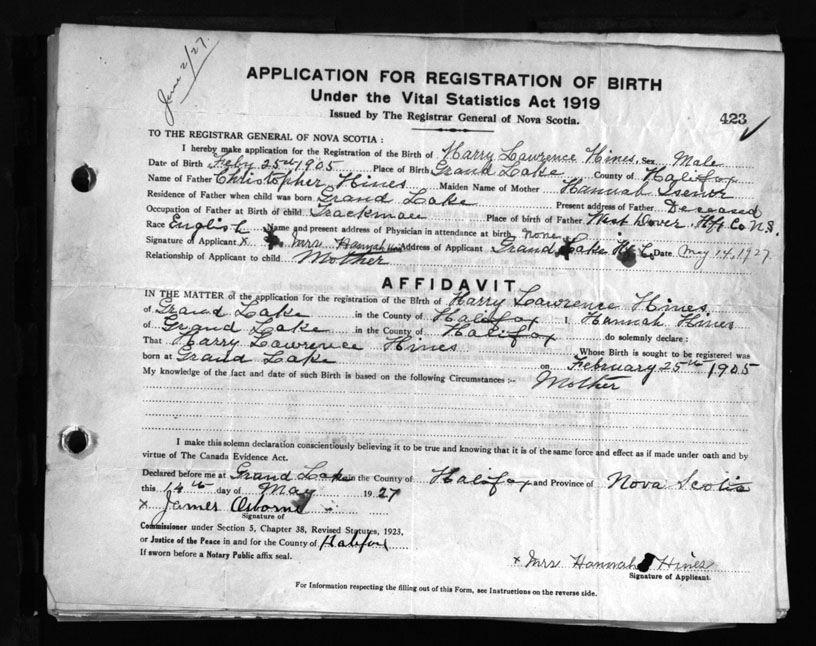 June 2/27.
APPLICATION FOR REGISTRATION OF BIRTH
Under the Vital Statistics Act 1919
Issued by The Registrar General of Nova Scotia.
423 ✓
TO THE REGISTRAR GENERAL OF NOVA SCOTIA :
I hereby make application for the Registration of the Birth of Harry Lawrence Hines. Sex Male
Date of Birth Feby 25th 1905 Place of Birth Grand Lake County of Halifax
Name of Father Christopher Hines Maiden Name of Mother Hannah Isenor
Residence of Father when child was born Grand Lake Present address of Father Deceased
Occupation of Father at Birth of child Trackman Place of birth of Father West Dover Hfx Co N.S.
Race English Name and present address of Physician in attendance at birth none
Signature of Applicant X Mrs Hannah Address of Applicant Grand Lake Date May 14, 1927
Relationship of Applicant to child Mother
AFFIDAVIT
IN THE MATTER of the application for the registration of the Birth of Harry Lawrence Hines
of Grand Lake in the County of Halifax I, Hannah Hines
of Grand Lake in the County of Halifax do solemnly declare :
That Harry Lawrence Hines Whose Birth is sought to be registered was
born at Grand Lake on February 25th 1905
My knowledge of the fact and date of such Birth is based on the following Circumstances :- Mother
I make this solemn declaration conscientiously believing it to be true and knowing that it is of the same force and effect as if made under oath and by
virtue of The Canada Evidence Act.
Declared before me at Grand Lake in the County of Halifax and Province of Nova Scotia
this 14th day of May 1927
x James Osborne
Signature of
Commissioner under Section 5, Chapter 38, Revised Statutes, 1923,
or Justice of the Peace in and for the County of Halifax
If sworn before a Notary Public affix seal.
x Mrs Hannah Hines
Signature of Applicant.
For Information respecting the filling out of this Form, see Instructions on the reverse side.